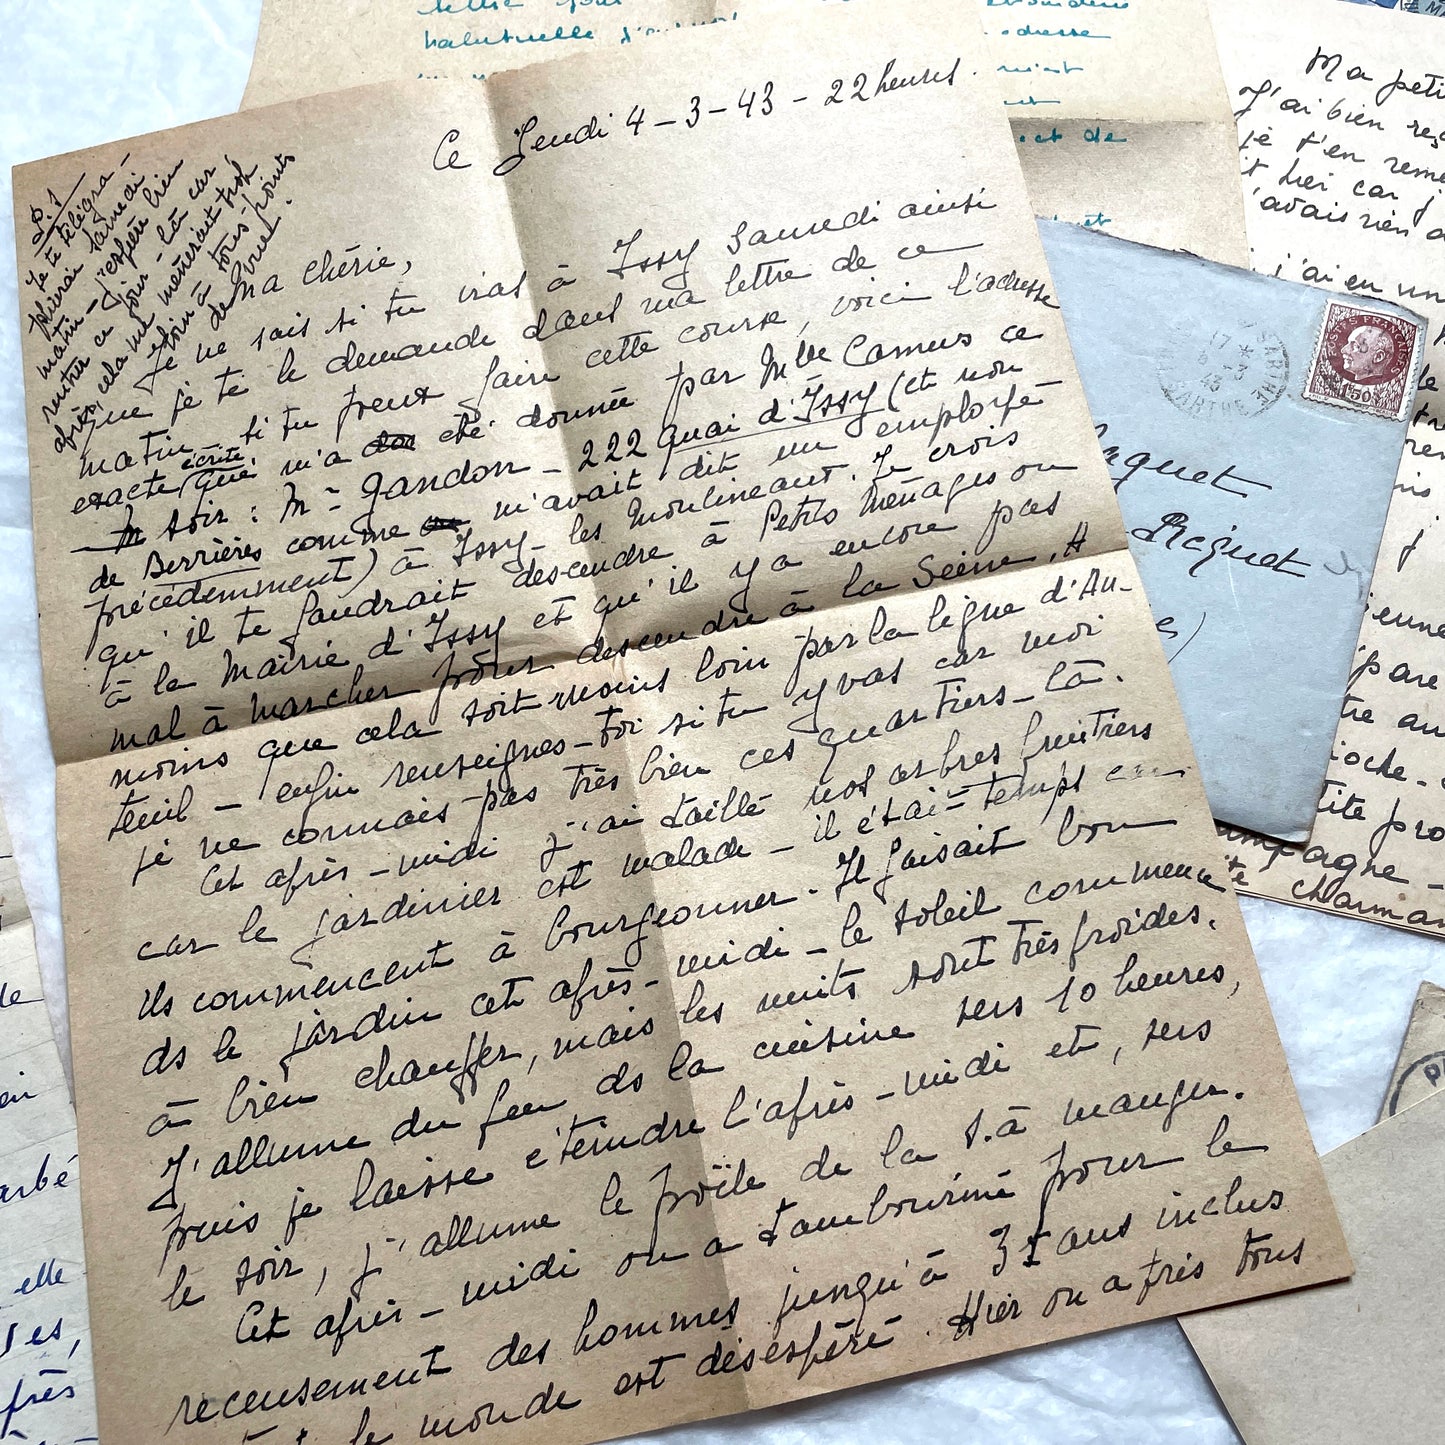 Ce Jeudi 4-3-43 - 22 heures.
P.S
Je te télégra-
phierai samedi
matin - j'espère bien
rentrer ce jour-là car
après, cela me mènerait trop
loin à tous points
de vue.
Ma chérie,
Je ne sais si tu iras à Issy Samedi ainsi
que je te le demande dans ma lettre de ce
matin, si tu peux faire cette course, voici l'adresse
exacte que m'a été donnée par Mlle Camus ce
écrite,
soir : Mr Gandon - 222 Quai d'Issy (et non
de Verrières comme m'avait dit un employé
précédemment) à Issy-les Moulineaux. Je crois
qu'il te faudrait descendre à Petits Ménages ou
à la Mairie d'Issy et qu'il y a encore pas
mal à marcher pour descendre à la Seine, à
moins que cela soit moins loin par la ligne d'Au-
teuil - enfin renseignes-toi si tu y vas car moi
je ne connais pas très bien ces quartiers-là.
Cet après-midi j'ai taillé nos arbres fruitiers
car le jardinier est malade - il était temps car
ils commencent à bourgeonner. Il faisait bon
ds le jardin cet après-midi - le soleil commence
à bien chauffer, mais les nuits sont très froides.
J'allume du feu ds la cuisine vers 10 heures,
puis je laisse éteindre l'après-midi et, vers
le soir, j'allume le poële de la s.à manger.
Cet après-midi on a tambouriné pour le
recensement des hommes jusqu'à 31 ans inclus
le monde est désespéré. Hier on a pris tous
habituelle
adresse
et de
Ma peti
J'ai bien reç
je t'en reme
hier car j
avais rien
j'ai en un
POSTES FRANÇAISES
1F50
SARTHE
Raquet
Riquet
ienne
pare
tre au
ioche-
tite pro
mpagne -
charman
de
arbé
elle
es,
près